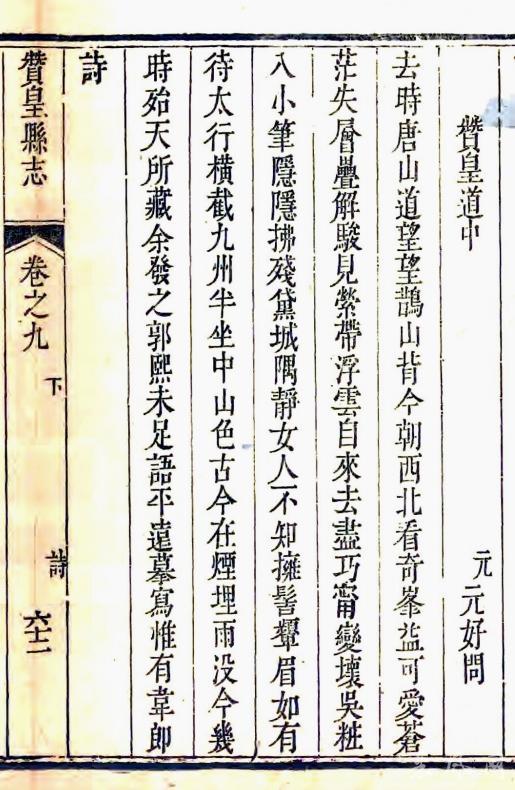 贊皇道中
元 元好問
去時唐山道望望鵲山背今朝西北看奇峯益可愛蒼
茫失層疊解駿見縈帶浮雲自來去盡巧甯變壞吳粧
入小筆隱隱拂殘黛城隅靜女人不知擁髻顰眉如有
待太行橫截九州半坐中山色古今在煙埋雨没今幾
時殆天所藏余發之郭熙未足語平遠摹寫惟有韋郎
詩
贊皇縣志
卷之九
下
詩
六十二